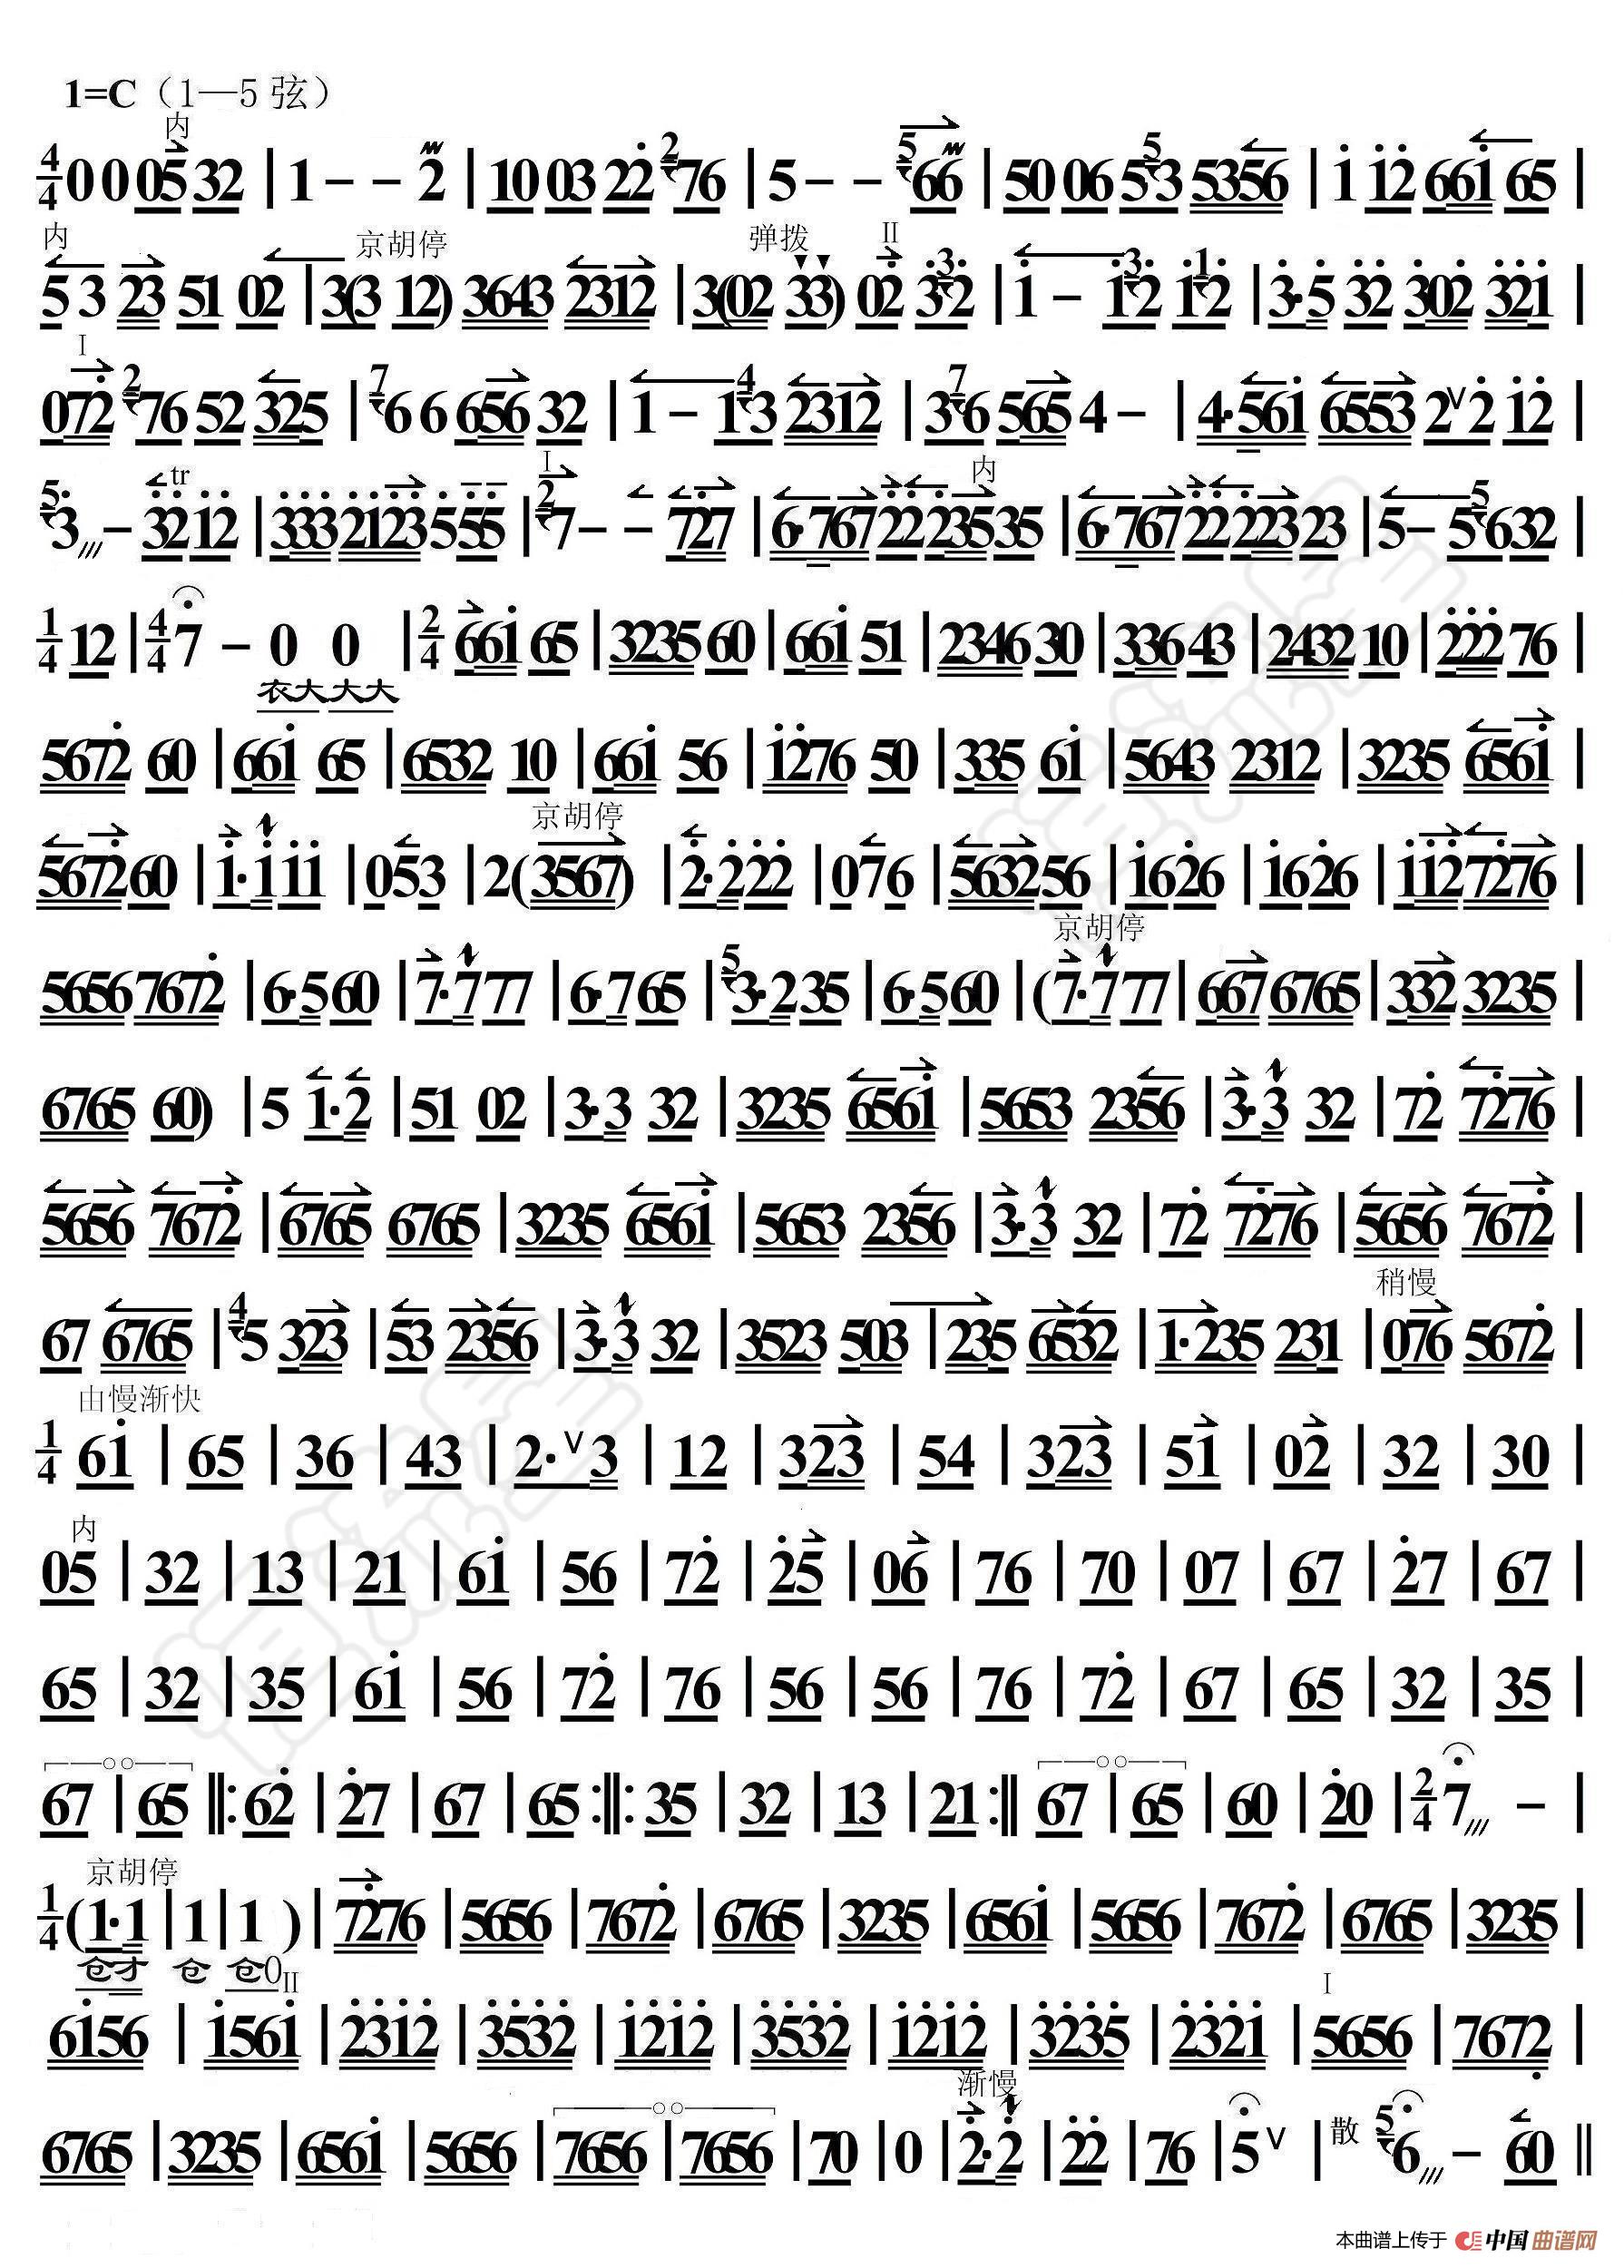 1=C（1—5 弦）
内
4/4 0 0 05 32 | 1 - - 2 | 10 03 22 2 76 | 5 - - 5 66 | 50 06 5 5 3 5356 | 1 12 661 65 |
内 京胡停 弹拨 II
5 3 23 51 02 | 3(3 12) 3643 2312 | 3(02 33) 02 3 3 2 | 1 - 1 3 2 1 1 2 | 3·5 32 302 321 |
I
072 2 76 52 325 | 7 6 6 656 32 | 1 - 1 4 3 2312 | 3 7 6 565 4 - | 4·561 6553 2 V 2 12 |
tr I 内
5 3 /// - 32 12 | 333 2123 5 55 | 2 7 - - 727 | 6·767 22 235 35 | 6·767 22 2223 23 | 5 - 5 5 6 32 |
1/4 12 | 4/4 7 - 0 0 | 2/4 661 65 | 3235 60 | 661 51 | 2346 30 | 336 43 | 2432 10 | 222 76 |
衣大 大大
5672 60 | 661 65 | 6532 10 | 661 56 | 1276 50 | 335 61 | 5643 2312 | 3235 6561 |
京胡停
5672 60 | 1·1 11 | 053 | 2(3567) | 2·2 22 | 076 | 5632 56 | 16 26 | 16 26 | 112 7276 |
京胡停
5656 7672 | 6·5 60 | 7·7 77 | 6·7 65 | 5 3·2 35 | 6·5 60 | (7·7 77 | 667 6765 | 332 3235 |
6765 60) | 5 1·2 | 51 02 | 3·3 32 | 3235 6561 | 5653 2356 | 3·3 32 | 72 7276 |
5656 7672 | 6765 6765 | 3235 6561 | 5653 2356 | 3·3 32 | 72 7276 | 5656 7672 |
稍慢
67 6765 | 4 5 323 | 53 2356 | 3·3 32 | 3523 503 | 235 6532 | 1·235 231 | 076 5672 |
由慢渐快
1/4 61 | 65 | 36 | 43 | 2· V 3 | 12 | 323 | 54 | 323 | 51 | 02 | 32 | 30 |
内
05 | 32 | 13 | 21 | 61 | 56 | 72 | 25 | 06 | 76 | 70 | 07 | 67 | 27 | 67 |
65 | 32 | 35 | 61 | 56 | 72 | 76 | 56 | 56 | 76 | 72 | 67 | 65 | 32 | 35 |
67 | 65 ‖: 62 | 27 | 67 | 65 :‖: 35 | 32 | 13 | 21 :‖ 67 | 65 | 60 | 20 | 2/4 7 /// - |
京胡停
1/4 (1·1 | 1 | 1 ) | 7276 | 5656 | 7672 | 6765 | 3235 | 6561 | 5656 | 7672 | 6765 | 3235 |
仓才 仓 仓0 II I
6156 | 1561 | 2312 | 3532 | 1212 | 3532 | 1212 | 3235 | 2321 | 5656 | 7672 |
渐慢
6765 | 3235 | 6561 | 5656 | 7656 | 7656 | 70 | 0 | 2·2 | 22 | 76 | 5 V | 散 5 6 /// - 60 ‖
本曲谱上传于 中国曲谱网